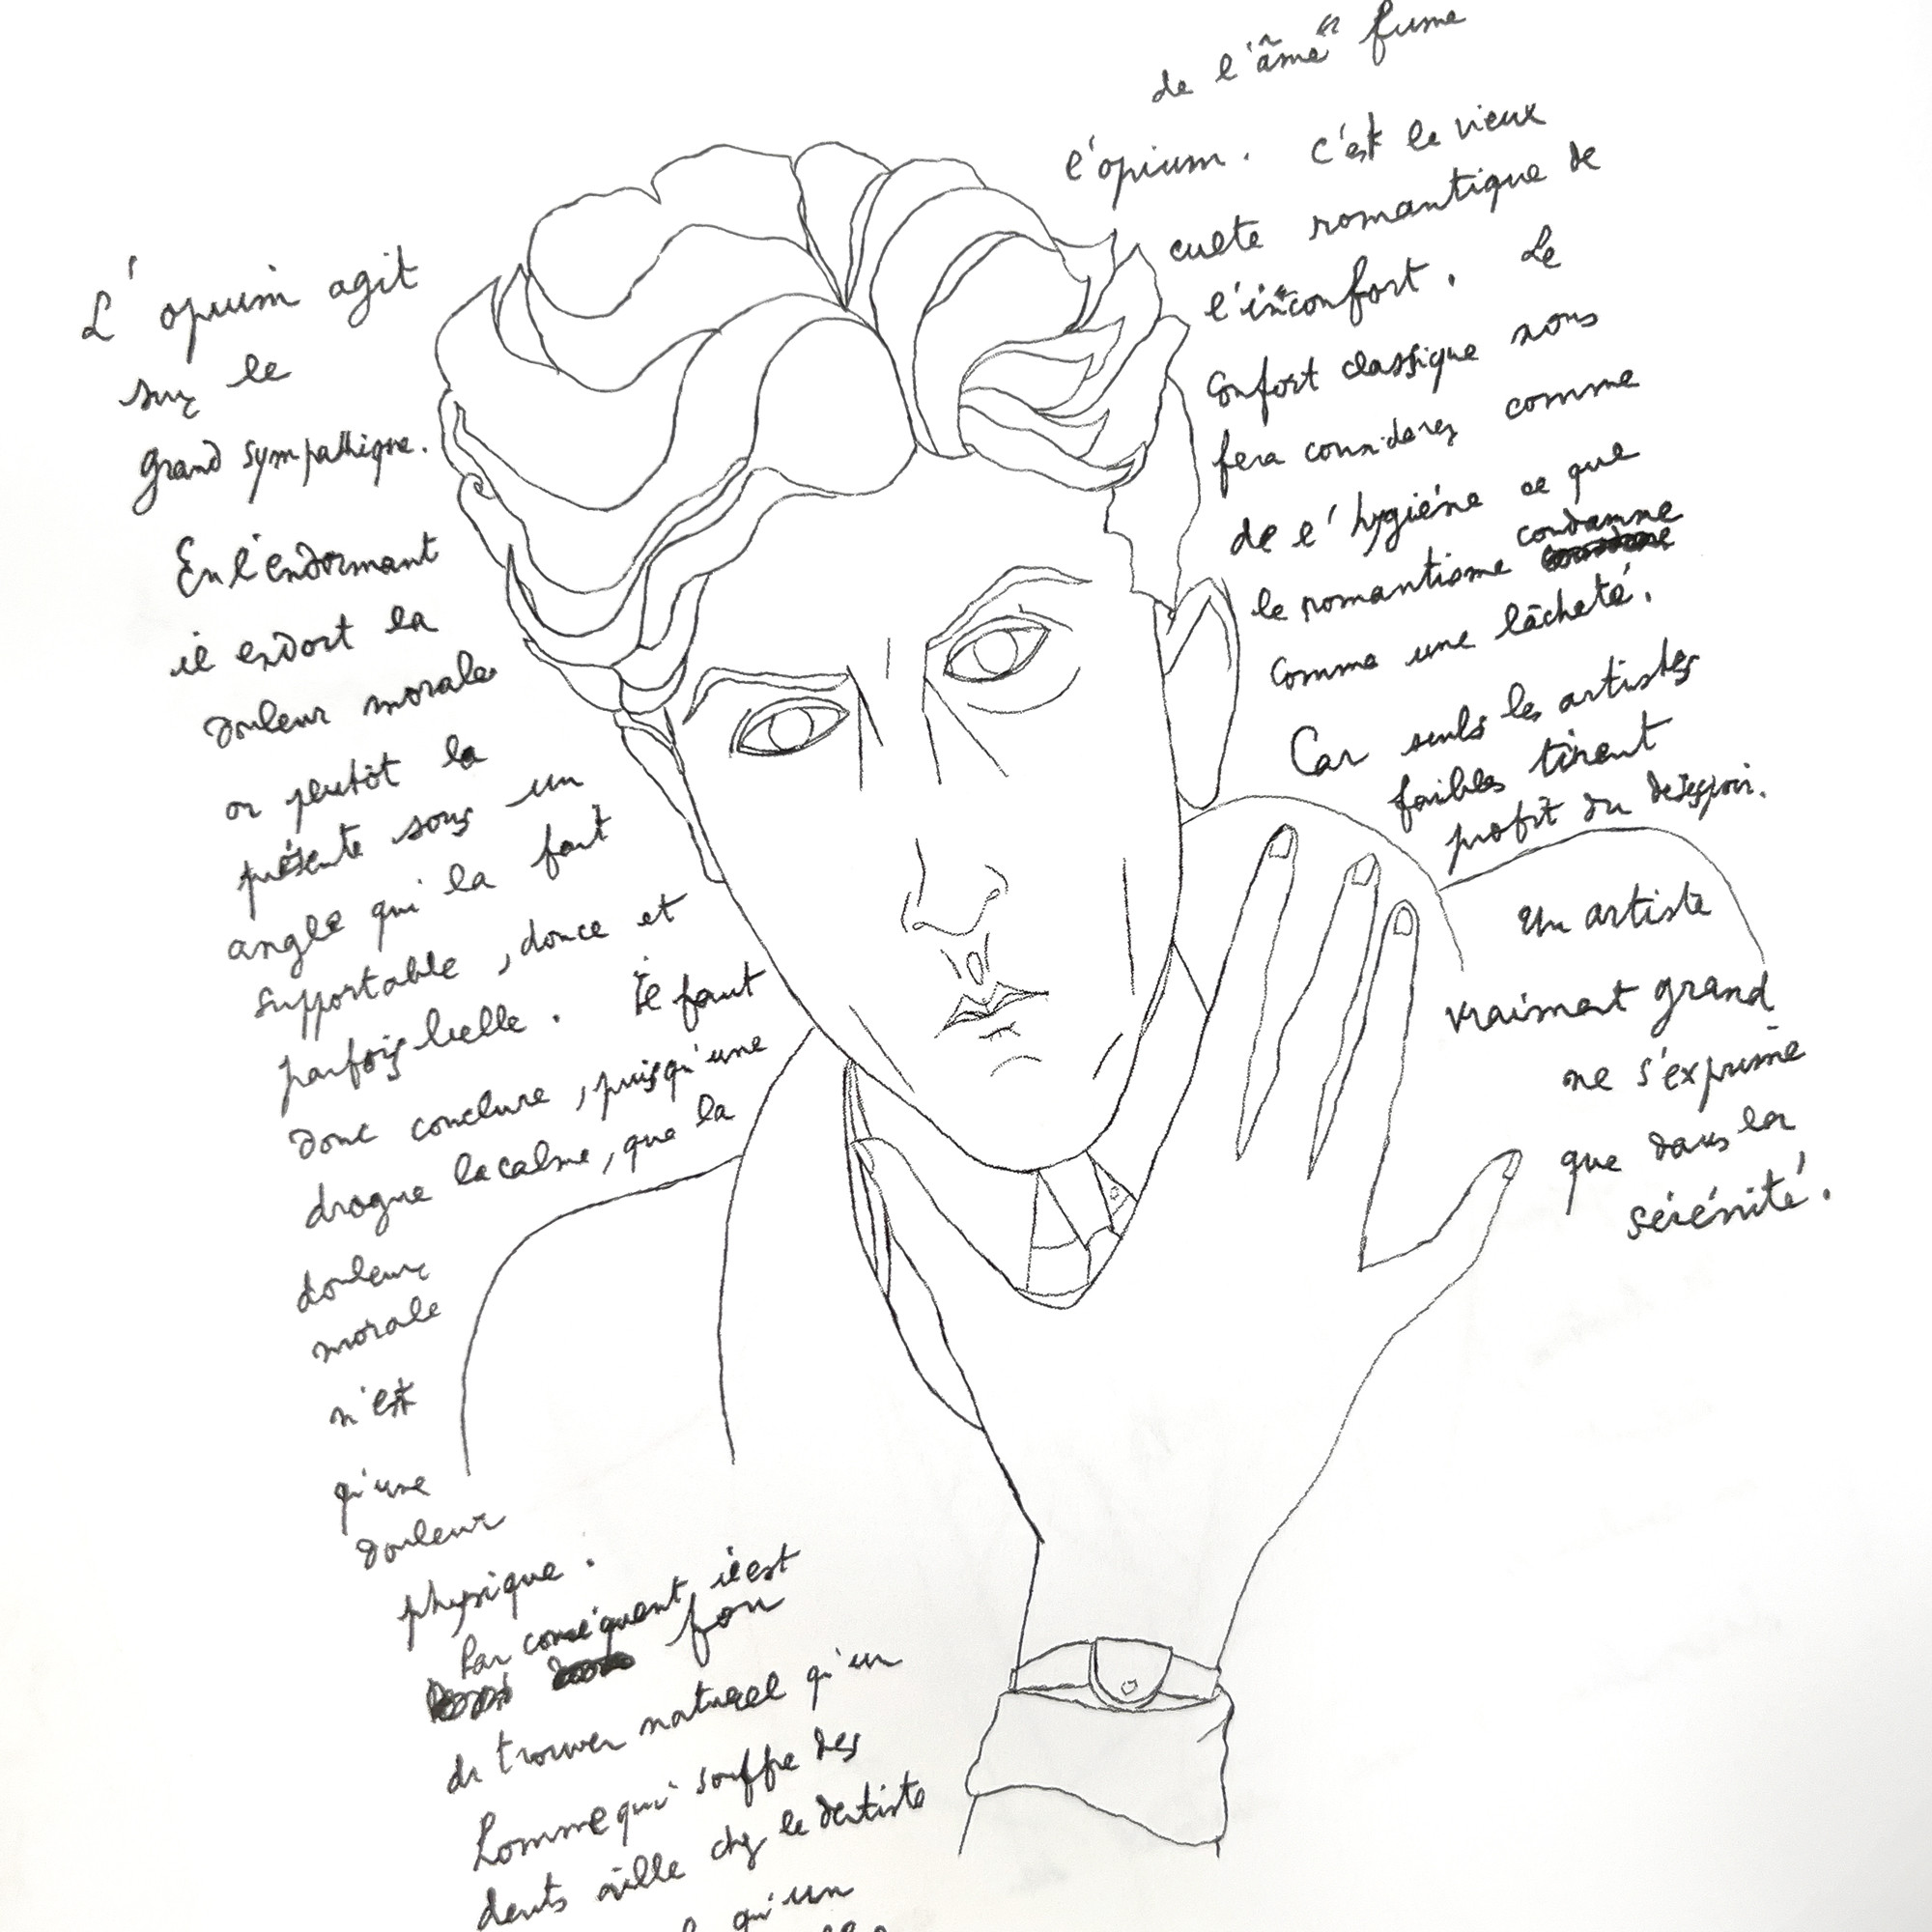 L'opium agit
sur le
grand sympathique.
En l'endormant
il endort la
douleur morale
ou plutôt la
présente sous un
angle qui la fait
supportable, douce et
parfois belle. Il faut
donc conclure, puisqu'une
drogue la calme, que la
douleur
morale
n'est
qu'une
douleur
physique.
Par conséquent il est
fou
de trouver naturel qu'un
homme qui souffre des
dents aille chez le dentiste
qu'un
de l'âme fume
l'opium. C'est le vieux
culte romantique de
l'inconfort. Le
confort classique nous
fera considérer comme
de l'hygiène ce que
le romantisme condamne
comme une lâcheté.
Car seuls les artistes
faibles tirent
profit du désespoir.
Un artiste
vraiment grand
ne s'exprime
que dans la
sérénité.